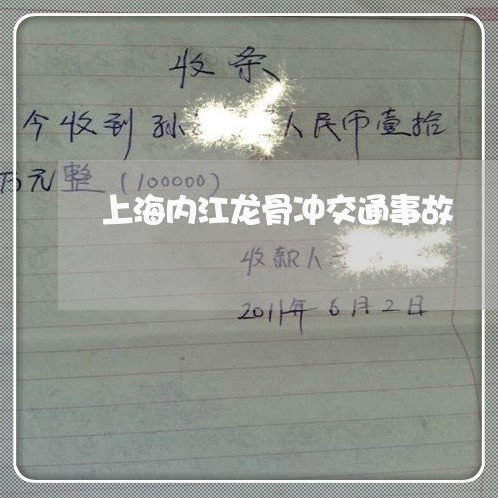 收条
今收到孙 人民币壹拾
万元整(100000)
上海内江龙骨冲交通事故
收款人
2011年6月2日